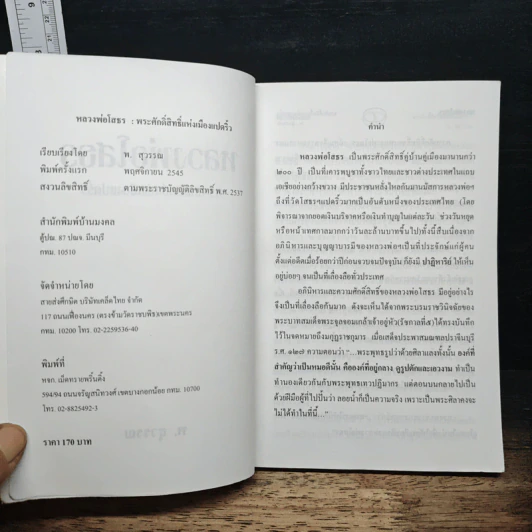 หลวงพ่อโสธร : พระศักดิ์สิทธิ์แห่งเมืองแปดริ้ว
เรียบเรียงโดย พ. สุวรรณ
พิมพ์ครั้งแรก พฤศจิกายน 2545
สงวนลิขสิทธิ์ ตามพระราชบัญญัติลิขสิทธิ์ พ.ศ. 2537
สำนักพิมพ์บ้านมงคล
ตู้ปณ. 87 ปณจ. มีนบุรี
กทม. 10510
จัดจำหน่ายโดย
สายส่งศึกษิต บริษัทเคล็ดไทย จำกัด
117 ถนนเฟื่องนคร (ตรงข้ามวัดราชบพิธ) เขตพระนคร
กทม. 10200 โทร. 02-2259536-40
พิมพ์ที่
หจก. เม็ดทรายพริ้นติ้ง
594/94 ถนนจรัญสนิทวงศ์ เขตบางกอกน้อย กทม. 10700
โทร. 02-8825492-3
ราคา 170 บาท
คำนำ
หลวงพ่อโสธร เป็นพระศักดิ์สิทธิ์คู่บ้านคู่เมืองมานานกว่า
๒๐๐ ปี เป็นที่เคารพบูชาทั้งชาวไทยและชาวต่างประเทศในแถบ
เอเซียอย่างกว้างขวาง มีประชาชนหลั่งไหลกันมานมัสการหลวงพ่อฯ
ถึงที่วัดโสธรฯแปดริ้วมากเป็นอันดับหนึ่งของประเทศไทย (โดย
พิจารณาจากยอดเงินบริจาคหรือเงินทำบุญในแต่ละวัน ช่วงวันหยุด
หรือหน้าเทศกาลมากกว่าวันละล้านบาทขึ้นไป) ทั้งนี้สืบเนื่องจาก
อภินิหารและบุญญาบารมีของหลวงพ่อฯเป็นที่ประจักษ์แก่ผู้คน
ตั้งแต่อดีตเมื่อร้อยกว่าปีก่อนจวบจนปัจจุบัน ก็ยังมี ปาฏิหาริย์ ให้เห็น
อยู่บ่อยๆ จนเป็นที่เลื่องลือทั่วประเทศ
อภินิหารและความศักดิ์สิทธิ์ของหลวงพ่อโสธร มีอยู่อย่างไร
จึงเป็นที่เลื่องลือกันมาก ดังจะเห็นได้จากพระบรมราชวินิจฉัยของ
พระบาทสมเด็จพระจุลจอมเกล้าเจ้าอยู่หัว(รัชกาลที่๕)ได้ทรงบันทึก
ไว้ในจดหมายถึงมกุฎราชกุมาร เมื่อเสด็จประพาสมณฑลปราจีนบุรี
ร.ศ.๑๒๗ ความตอนว่า “...พระพุทธรูปว่าด้วยศิลาแลงทั้งนั้น องค์ที่
สำคัญว่าเป็นหมอดีนั้น คือองค์ที่อยู่กลาง ดูรูปตักและเอวงาม ทำเป็น
ทำนองเดียวกันกับพระพุทธเทวปฏิมากร แต่ตอนบนกลายไปเป็น
ด้วยฝีมือผู้ที่ไปปั้นว่า ลอยน้ำก็เป็นความจริง เพราะเป็นพระศิลาคงจะ
ไม่ได้ทำในที่นี้...”